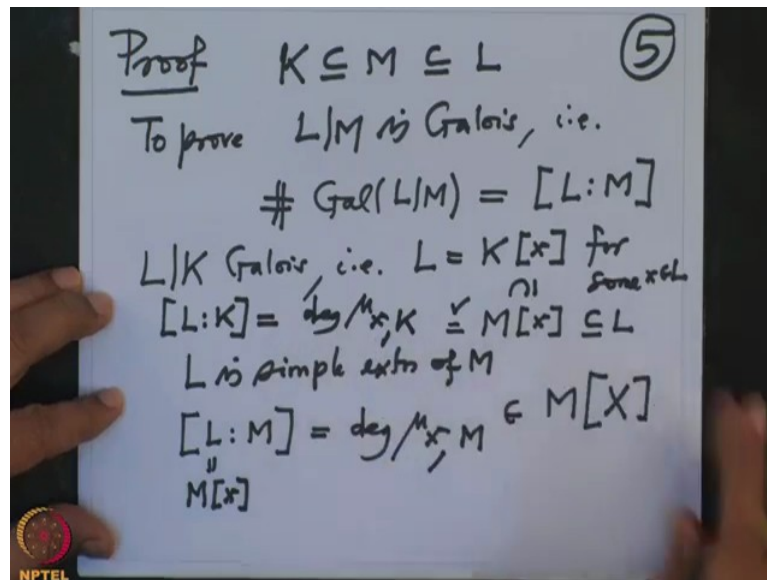 Proof K ⊆ M ⊆ L ⑤
To prove L|M is Galois, i.e.
# Gal(L|M) = [L:M]
L|K Galois, i.e. L = K[x] for some x∈L
[L:K] = deg μx,K = M[x] ⊆ L
L is simple extn of M
[L:M] = deg μx,M ∈ M[X]
"
M[x]
NPTEL